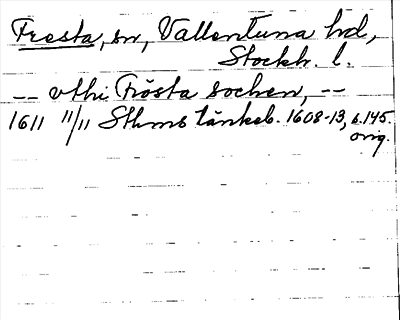 Fresta, sn, Vallentuna hd,
Stockh. l.
-- vthi Frösta sochen, --
1611 11/11 Sthms tänkeb. 1608-13, s. 145.
orig.